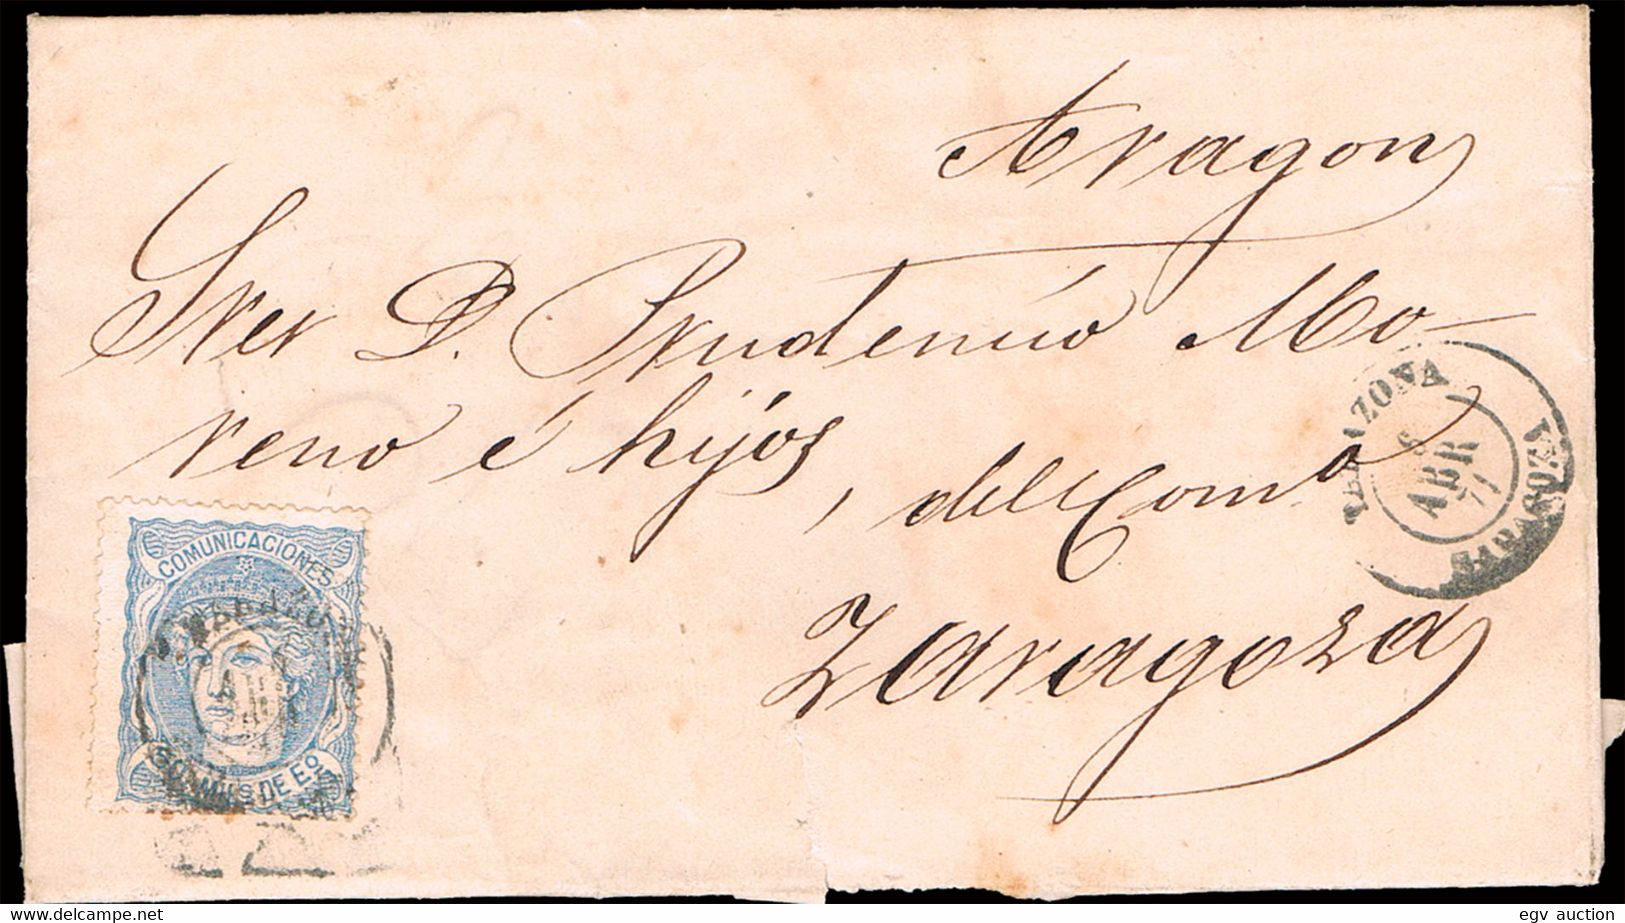 Aragon
Sres D. Prudencio Mo-
reno é hijos, del Como
Zaragoza
TARAZONA
6
ABR
71
ZARAGOZA
COMUNICACIONES
50 MILS DE Eo
delcampe.net
egv auction